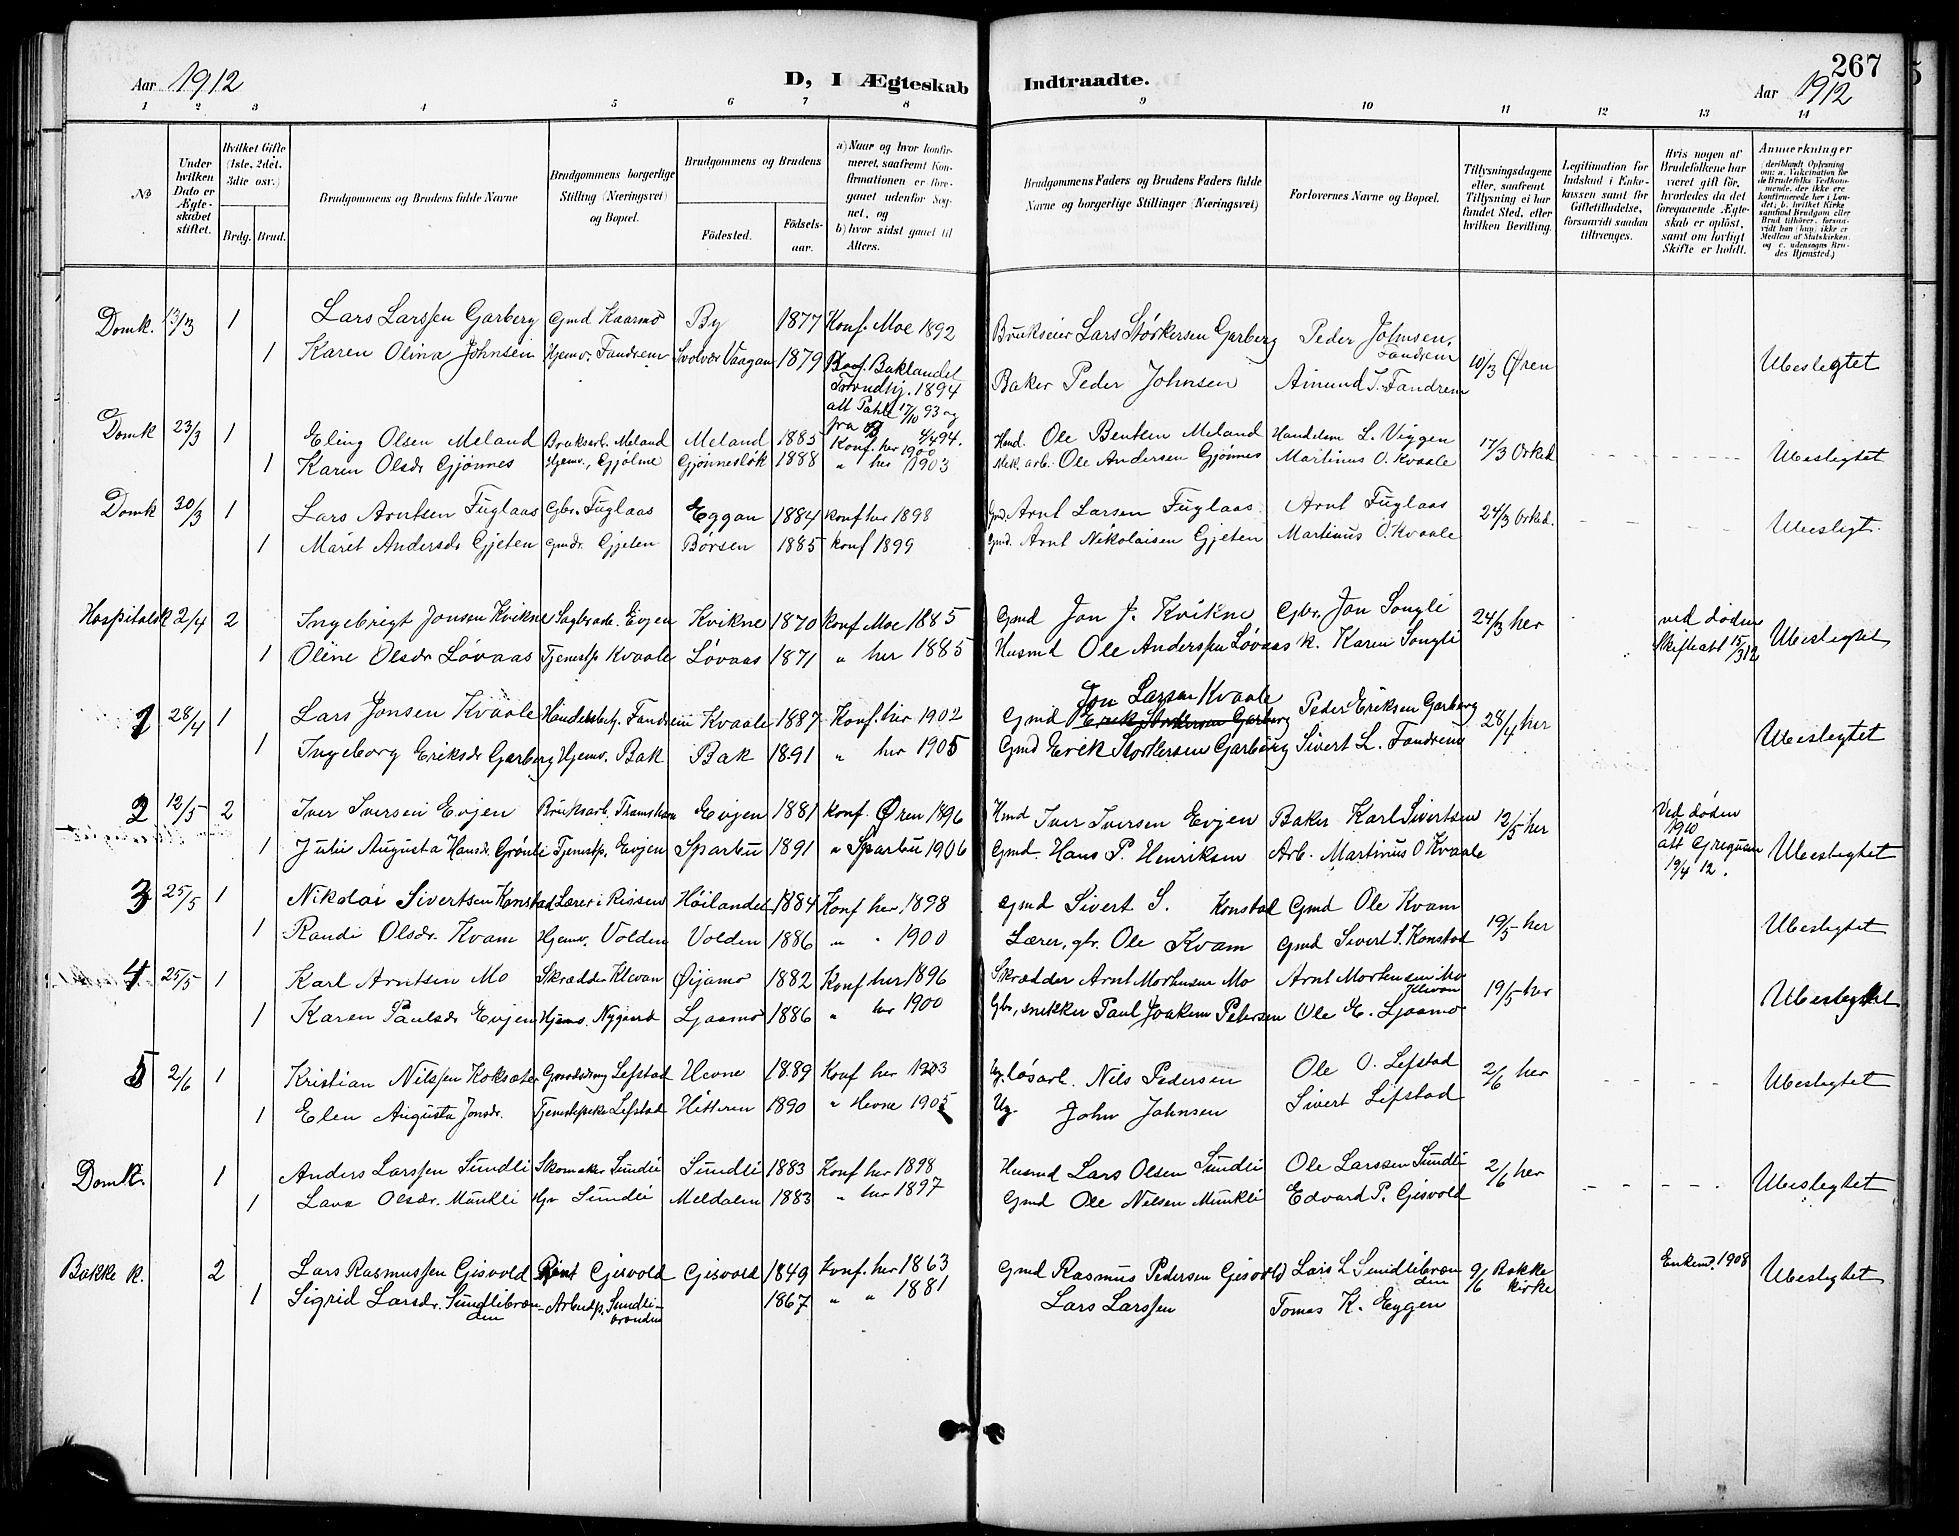 267
Aar 1912
D, I Ægteskab Indtraadte.
Aar 1912
1 2 3 4 5 6 7 8 9 10 11 12 13 14
No
Under hvilken Dato er Ægteskabet stiftet.
Hvilket Gifte (1ste, 2det, 3die osv.)
Brdg. Brud.
Brudgommens og Brudens fulde Navne
Brudgommens borgerlige Stilling (Næringsvei) og Bopæl.
Brudgommens og Brudens
Födested. Födsels-aar.
a) Naar og hvor konfirmeret, saafremt Konfirmationen er foregaaet udenfor Sognet, og
b) hvor sidst gaaet til Alters.
Brudgommens Faders og Brudens Faders fulde Navne og borgerlige Stillinger (Næringsvei)
Forlovernes Navne og Bopæl.
Tillysningsdagene eller, saafremt Tillysning ei har fundet Sted, efter hvilken Bevilling.
Legitimation for Indskud i Enkekassen samt for Giftetilladelse, forsaavidt saadan tiltrænges.
Hvis nogen af Brudefolkene har været gift för, hvorledes da det foregaaende Ægteskab er oplöst, samt om lovligt Skifte er holdt.
Anmerkninger
Domk. 13/3 1 Lars Larssen Garberg Gmd Kaarmo By 1877 Konf. Moe 1892 Brukseier Lars Størkersen Garberg Peder Johnsen, Fandrem
1 Karen Olina Johnsen Hjemv. Fandrem Svolvær Vaagan 1879 Konf. Baklandet Trondhj. 1894 Baker Peder Johnsen 10/3 Øren Ubeslegtet
Domk 23/3 1 Eling Olsen Meland Bruksarb. Meland Meland 1885 Konf. her 1900 Ole Bentsen Meland Handelsm L. Viggen
1 Karen Olsdr Gjönnes Hjemv. Gjölme 1888 " her 1903 Ole Andersen Gjönnes Martinus O. Kvaale 17/3 Orked Ubeslegtet
Domk 30/3 1 Lars Arntsen Fuglaas Gbr. Fuglaas Eggan 1884 konf her 1898 Arnt Larsen Fuglaas Arnt Fuglaas 24/3 Orked.
1 Marit Andersdr Gjeten Gjeten Börsen 1885 konf 1899 Gmd. Arnt Nikolaisen Gjeten Martinus O. Kvaale Ubesligt.
Hospitalsk 2/4 2 Ingebrigt Jonsen Kvikne Evjen Kvikne 1870 konf Moe 1885 Gmd Jon J. Kvikne Gbr. Jon Songli 24/3 her ved döden
1 Oline Olsdr Lövaas Tjenestp Kvaale Lövaas 1871 " her 1885 Husmd Ole Anderssen Lövaas k. Karen Songli Skifteatt 15/3 12 Ubeslegtet
1 28/4 1 Lars Jonsen Kvaale Handelsbetj. Fandrem Kvaale 1887 Konf. her 1902 Gmd Jon Larsen Kvaale Peder Eriksen Garberg 28/4 her
1 Ingeborg Eriksdr Garberg Hjemv. Bak Bak 1891 " her 1905 Gmd Erik Storkersen Garberg Sivert L. Fandrem Ubeslegtet
2 12/5 2 Iver Iversen Evjen Bruksarb. Thamshavn Evjen 1881 konf. Øren 1896 Iver Iversen Evjen Baker Karl Sivertsen 12/5 her Ved döden 1910
1 Julie Augusta Hansdr. Grönli Tjenestp. Evjen Sparbu 1891 " Sparbu 1906 Gmd. Hans P. Henriksen Arb. Martinus O Kvaale 19/4 12. Ubeslegtet
3 25/5 1 Nikolai Sivertsen Konstad Lærer i Rissen Höilandet 1884 Konf her 1898 Gmd Sivert S. Konstad Gmd Ole Kvam
1 Randi Olsdr. Kvam Hjemv. Volden Volden 1886 " " 1900 Lærer, gbr. Ole Kvam Gmd Sivert S. Konstad 19/5 her Ubeslegtet
4 25/5 1 Karl Arntsen Mo Skrædder Klevan Øijamo 1882 Konf her 1896 Skrædder Arnt Mortensen Mo Arnt Mortensen Mo Klevan
1 Karen Paulsdr Evjen Hjemv. Nygaard Ljosmo 1886 " her 1900 Gbr, snekker Paul Joakem Petersen Ole E. Ljosmo 19/5 her Ubeslegtet
5 2/6 1 Kristian Nilssen Koksæter Lefstad Hevne 1889 Konf her 1903 Ug. lösarb. Nils Pedersen Ole O. Lefstad 2/6 her
1 Elen Augusta Jonsdr. Lefstad Hitteren 1890 " Hevne 1905 Ug. John Johnsen Sivert Lefstad Ubeslegtet
Domk. 1 Anders Larssen Sundli Skomaker Sundli Sundli 1883 Konf her 1898 Husmd Lars Olsen Sundli Ole Larssen Sundli 2/6 her
1 Lava Olsdr. Munkli Hjv Sundli Meldalen 1883 " her 1897 Gmd Ole Nilsen Munkli Edvard P. Gisvold Ubeslegtet
Bakke k. 2 Lars Rasmussen Gisvold Gisvold Gisvold 1849 konf. her 1863 Gmd Rasmus Pedersen Gisvold Lars L Sundlibrænden 9/6 Bakke kirke Enkem. 1908
1 Sigrid Larsdr. Sundlibrænden Arbeidsp. Sundlibrænden 1867 " " 1881 Lars Larssen Tomas K. Eggen Ubeslegtet